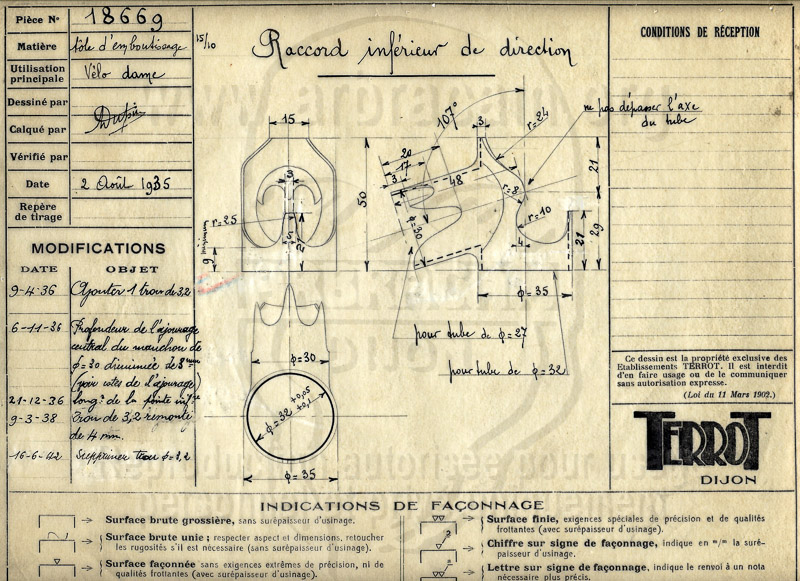 Pièce Nº 18669
Matière tôle d'emboutissage 15/10
Utilisation principale Vélo dame
Dessiné par
Calqué par
Vérifié par
Date 2 Août 1935
Repère de tirage
MODIFICATIONS
DATE OBJET
9-4-36 Ajouter 1 trou de 3,2
6-11-36 Profondeur de l'ajourage
central du manchon de
ϕ=30 diminuée de
(voir cotes de l'ajourage)
21-12-36 long. de la pointe infre
9-3-38 Trou de 3,2 remonté
de 4 mm.
16-6-42 Supprimer trou ϕ=3,2
Raccord inférieur de direction
15
3
r=25
5
21
9
50
107°
20
17
3
48
ϕ=30
3
r=24
ne pas dépasser l'axe
du tube
r=8
r=10
4
21
21
29
ϕ=35
pour tube de ϕ=27
pour tube de ϕ=32
ϕ=30
ϕ=32 +0,05 +0,1
ϕ=35
CONDITIONS DE RÉCEPTION
Ce dessin est la propriété exclusive des
Etablissements TERROT. Il est interdit
d'en faire usage ou de le communiquer
sans autorisation expresse.
(Loi du 11 Mars 1902.)
TERROT
DIJON
INDICATIONS DE FAÇONNAGE
Surface brute grossière, sans surépaisseur d'usinage.
Surface brute unie ; respecter aspect et dimensions, retoucher
les rugosités s'il est nécessaire (sans surépaisseur d'usinage).
Surface façonnée sans exigences extrêmes de précision, ni de
qualités frottantes (avec surépaisseur d'usinage).
Surface finie, exigences spéciales de précision et de qualités
frottantes (avec surépaisseur d'usinage).
Chiffre sur signe de façonnage, indique en m/m la suré-
paisseur d'usinage.
Lettre sur signe de façonnage, indique le renvoi à un nota
nécessaire plus précis.